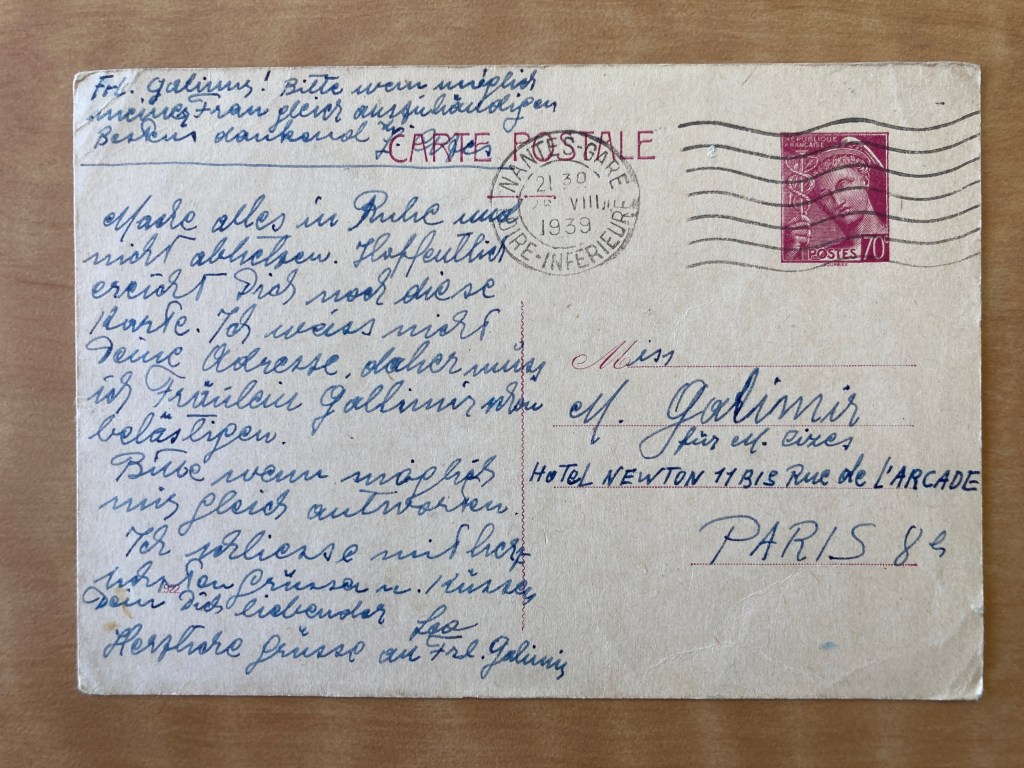 Frl. Galimir! Bitte wenn möglich
meiner Frau gleich auszuhändigen
Bestens dankend
CARTE POSTALE
RÉPUBLIQUE
FRANÇAISE
POSTES 70c
NANTES-GARE
21 30
VIII
1939
LOIRE-INFÉRIEURE
Mache alles in Ruhe und
nicht abhetzen. Hoffentlich
erreicht Dich noch diese
Karte. Ich weiss nicht
Deine Adresse, daher muss
ich Fräulein Gallimir schon
belästigen.
Bitte wenn möglich
mir gleich antworten.
Ich schliesse mit herz-
lichsten Grüssen u. Küssen
Dein Dich liebender
Leo
Herzliche Grüsse an Frl. Galimir
922
Miss
M. Galimir
für M. Cizes
HOTEL NEWTON 11 BIS Rue de L'ARCADE
PARIS 8e